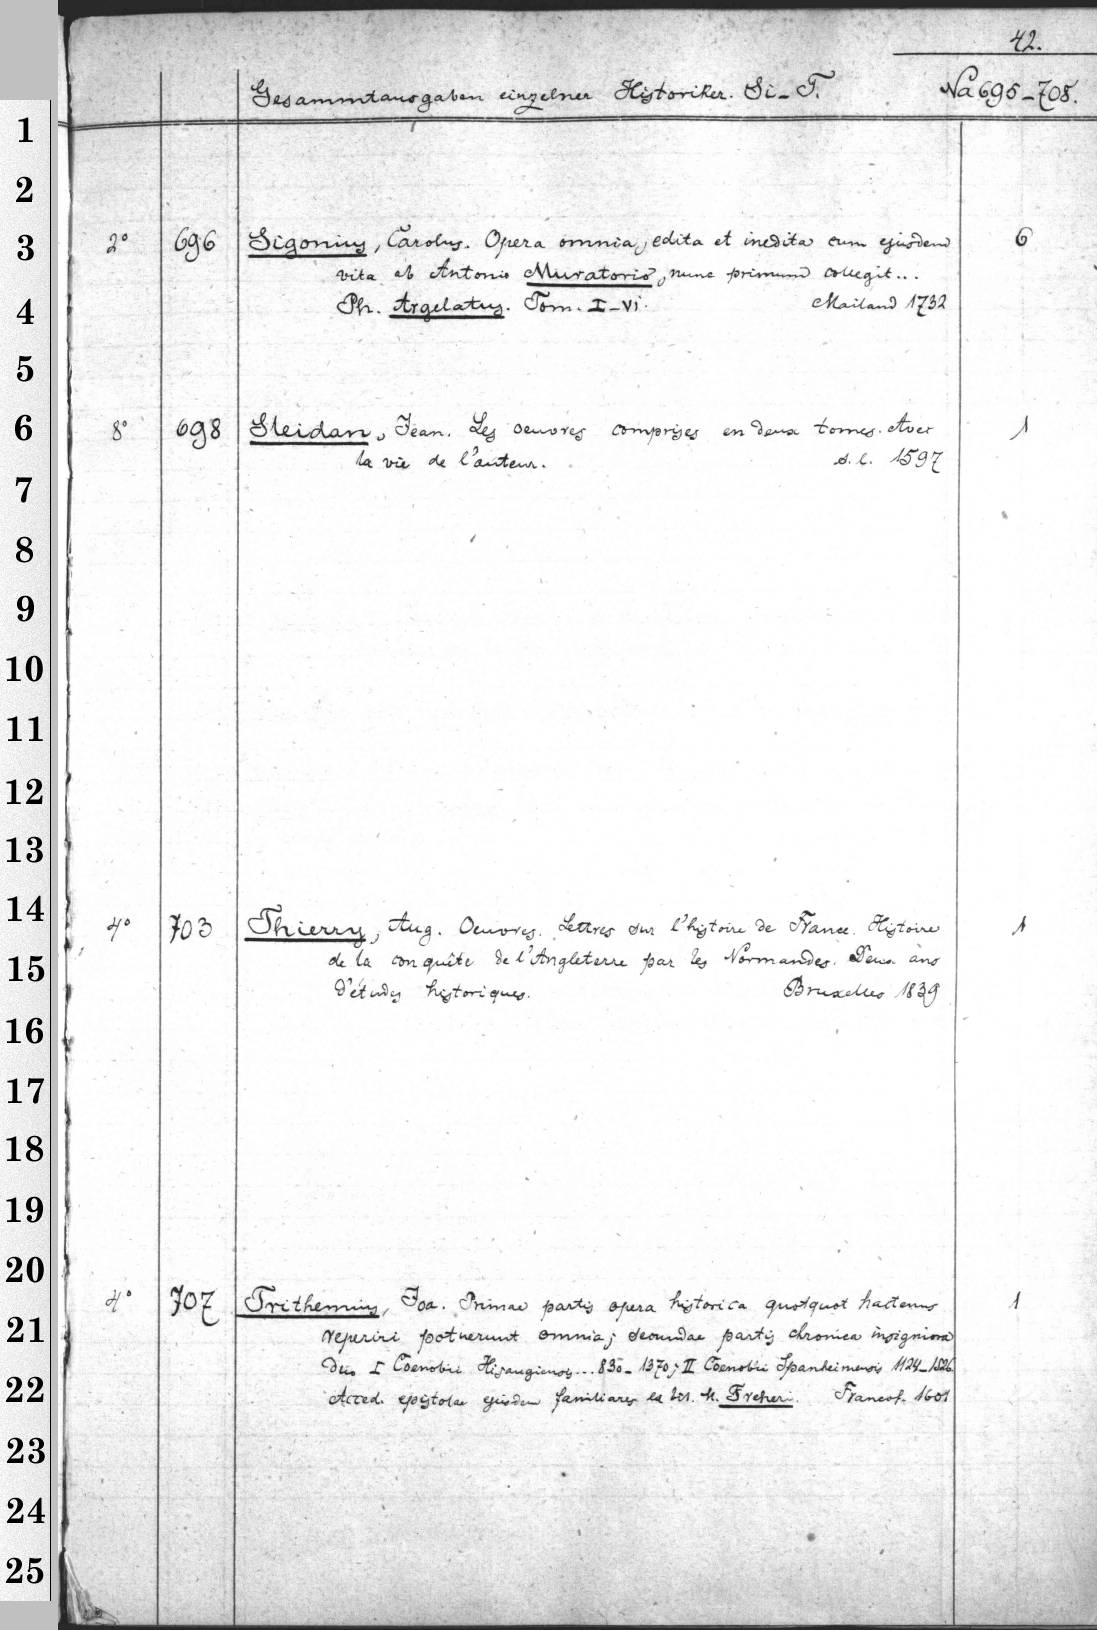 42.
Gesammtausgaben einzelner Historiker. Si-T. Na 695-708.
1
2
3
2° 696 Sigonius, Carolus. Opera omnia, edita et inedita cum ejusdem 6
vita ab Antonio Muratorio, nunc primum collegit...
4
Ph. Argelatus. Tom. I-VI. Mailand 1732
5
6
8° 698 Sleidan, Jean. Les oeuvres comprises en deux tomes. Avec 1
la vie de l'auteur. s. l. 1597
7
8
9
10
11
12
13
14
4° 703 Thierry, Aug. Oeuvres. Lettres sur l'histoire de France. Histoire 1
de la conquête de l'Angleterre par les Normandes. Deux ans
15
d'études historiques. Bruxelles 1839
16
17
18
19
20
4° 707 Trithemius, Joa. Primae partis opera historica quotquot hactenus 1
21
reperiri potuerunt omnia; secundae partis chronica insigniora
duo I Coenobii Hisaugiensis... 830-1370; II Coenobii Spanheimensis 1124-1526
22
Acced. epistolae ejusdem familiares ex M. Freheri. Francof. 1601
23
24
25